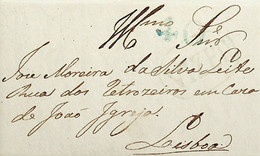 Illmo Snr
Jose Moreira da Silva Leite
Rua dos Retrozeiros em Caza
de João Igrejas
Lisboa